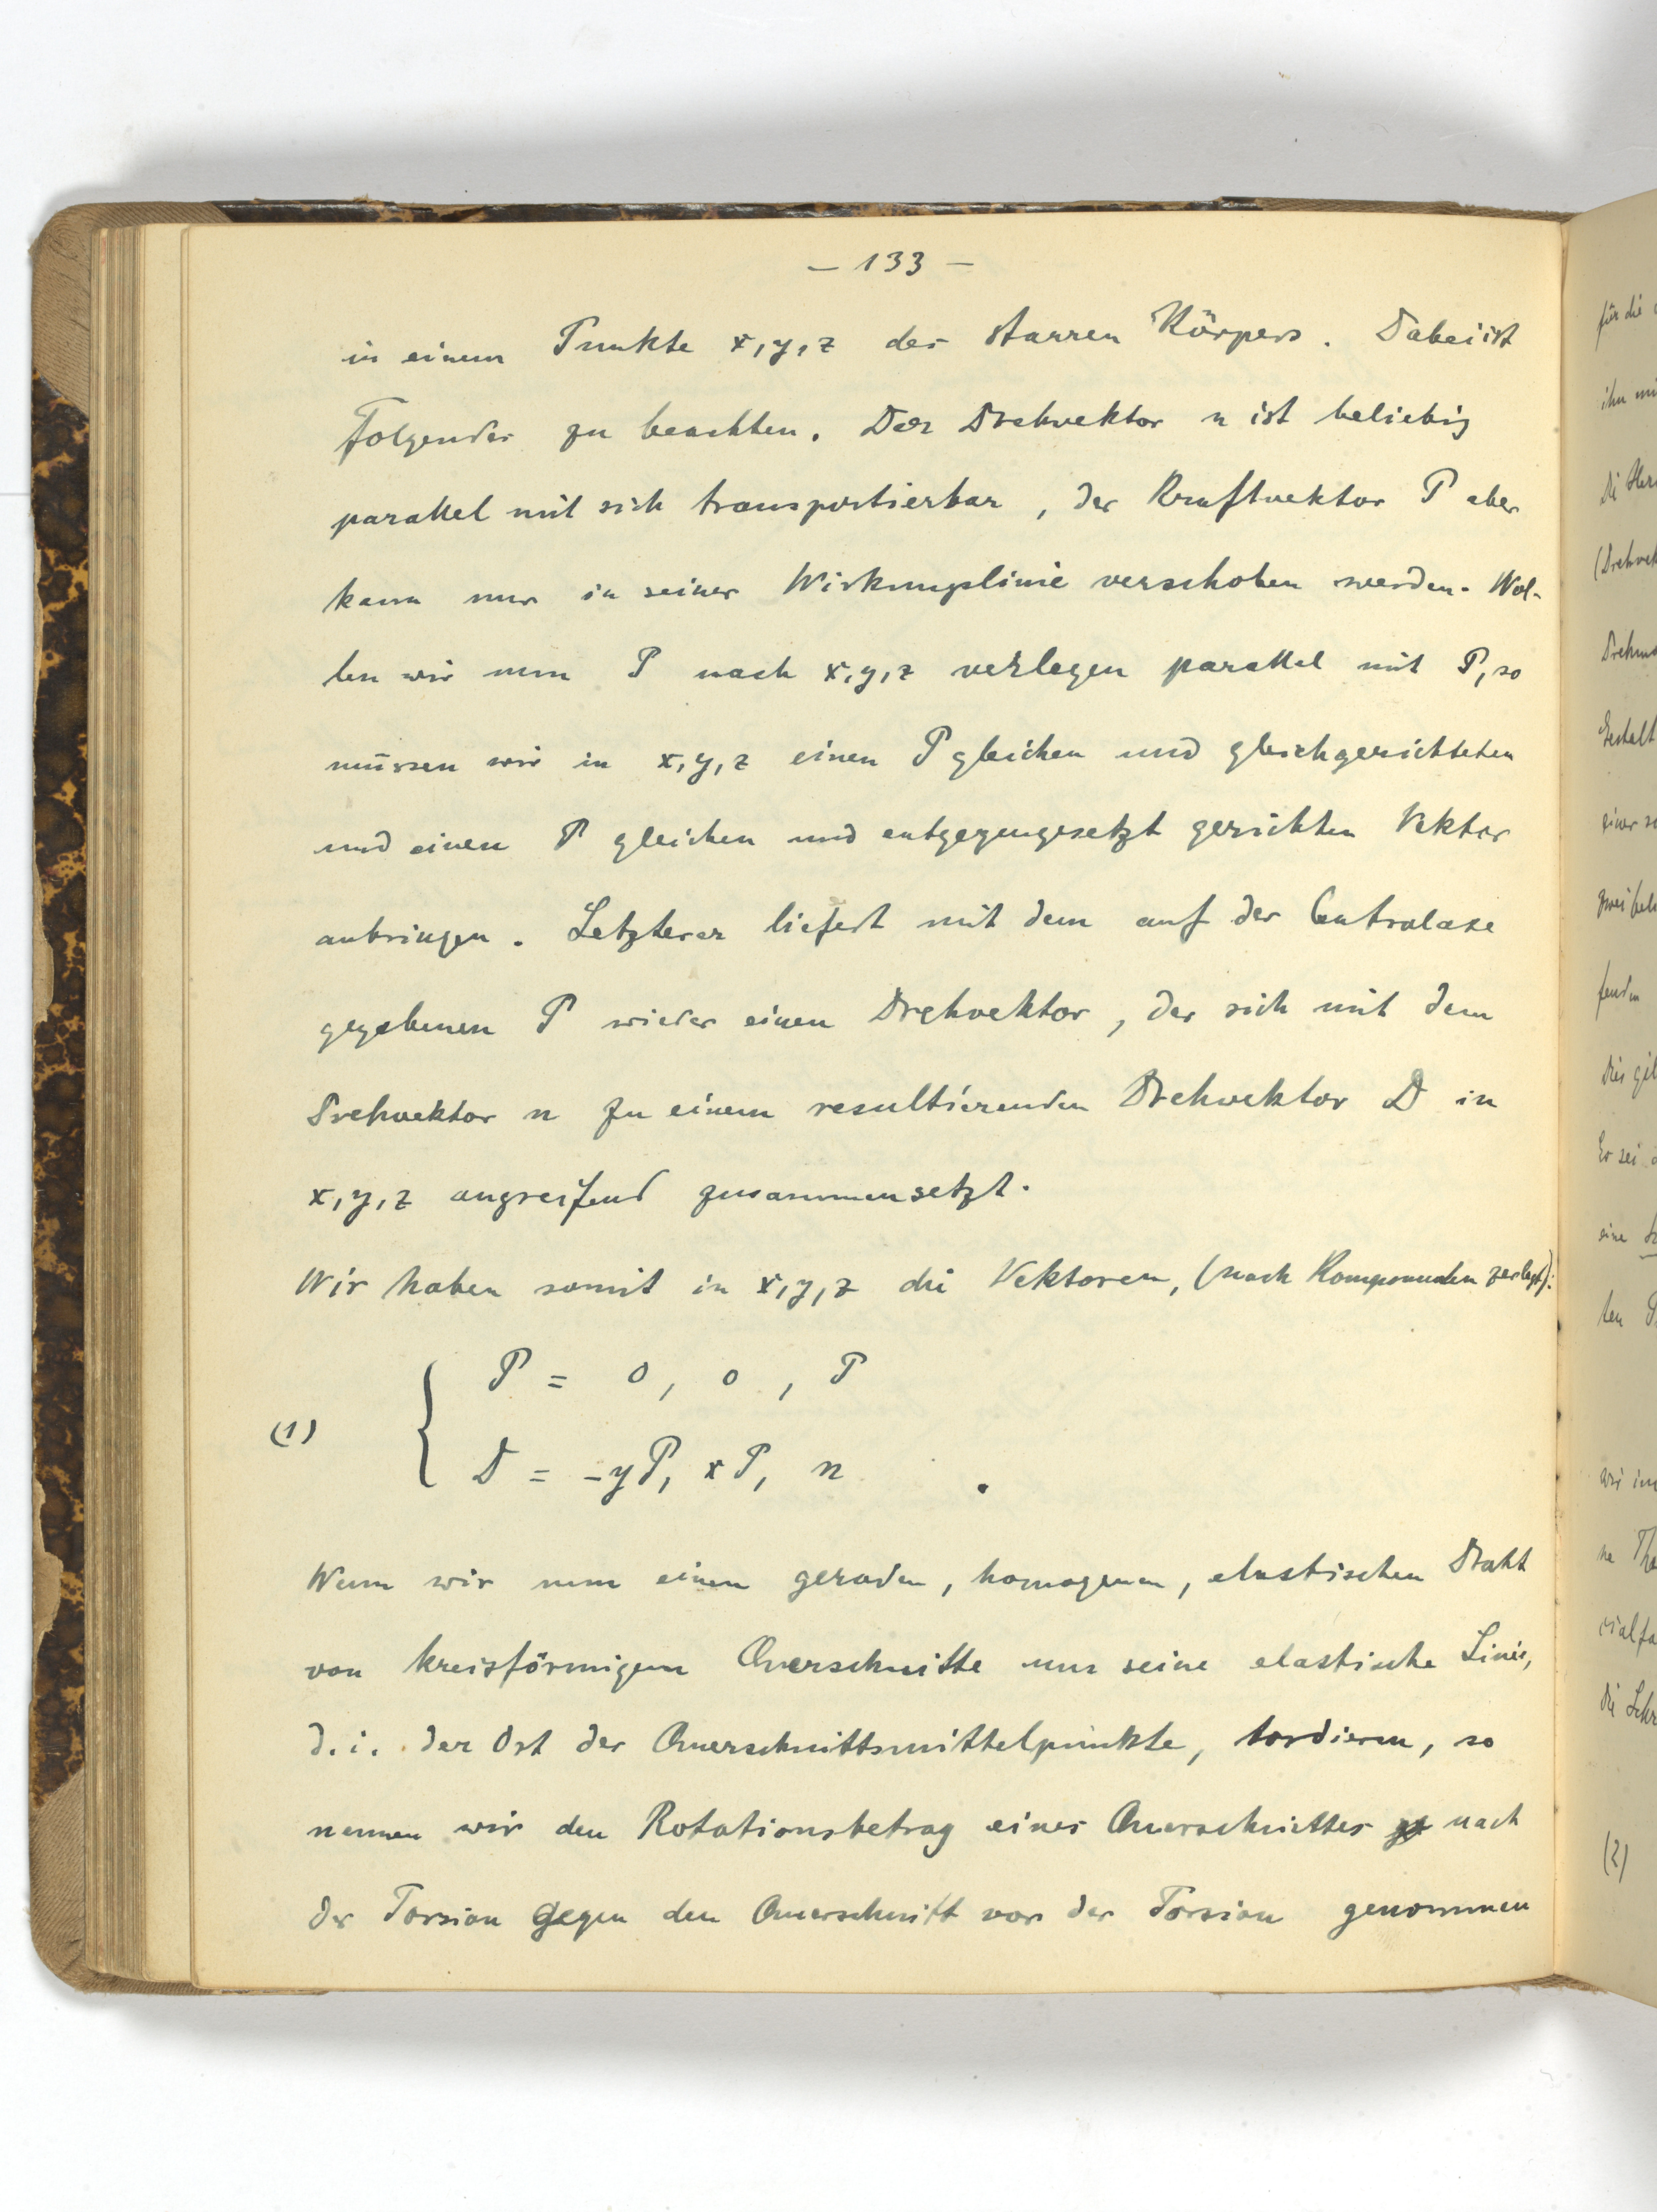 – 133 –
in einem Punkte x, y, z des starren Körpers. Dabei ist
Folgendes zu beachten. Der Drehvektor n ist beliebig
parallel mit sich transportierbar, der Kraftvektor P aber
kann nur in seiner Wirkungslinie verschoben werden. Wol-
len wir nun P nach x, y, z verlegen parallel mit P, so
müssen wir in x, y, z einen P gleichen und gleichgerichteten
und einen P gleichen und entgegengesetzt gerichten Vektor
anbringen. Letzterer liefert mit dem auf der Centralaxe
gegebenen P wieder einen Drehvektor, der sich mit dem
Drehvektor n zu einem resultierenden Drehvektor D in
x, y, z angreifend zusammensetzt.
Wir haben somit in x, y, z die Vektoren, (nach Komponenten zerlegt):
P = 0, 0, P
(1)
D = -yP, xP, n .
Wenn wir nun einen geraden, homogenen, elastischen Draht
von kreisförmigem Querschnitte um seine elastische Linie,
d. i. der Ort der Querschnittsmittelpunkte, tordieren, so
nennen wir den Rotationsbetrag eines Querschnittes nach
der Torsion gegen den Querschnitt vor der Torsion genommen
für die
ihn mi
(Drehvek
Gestalt
einer
fenden
dies gil
Er sei
eine
ten
wir im
(2)